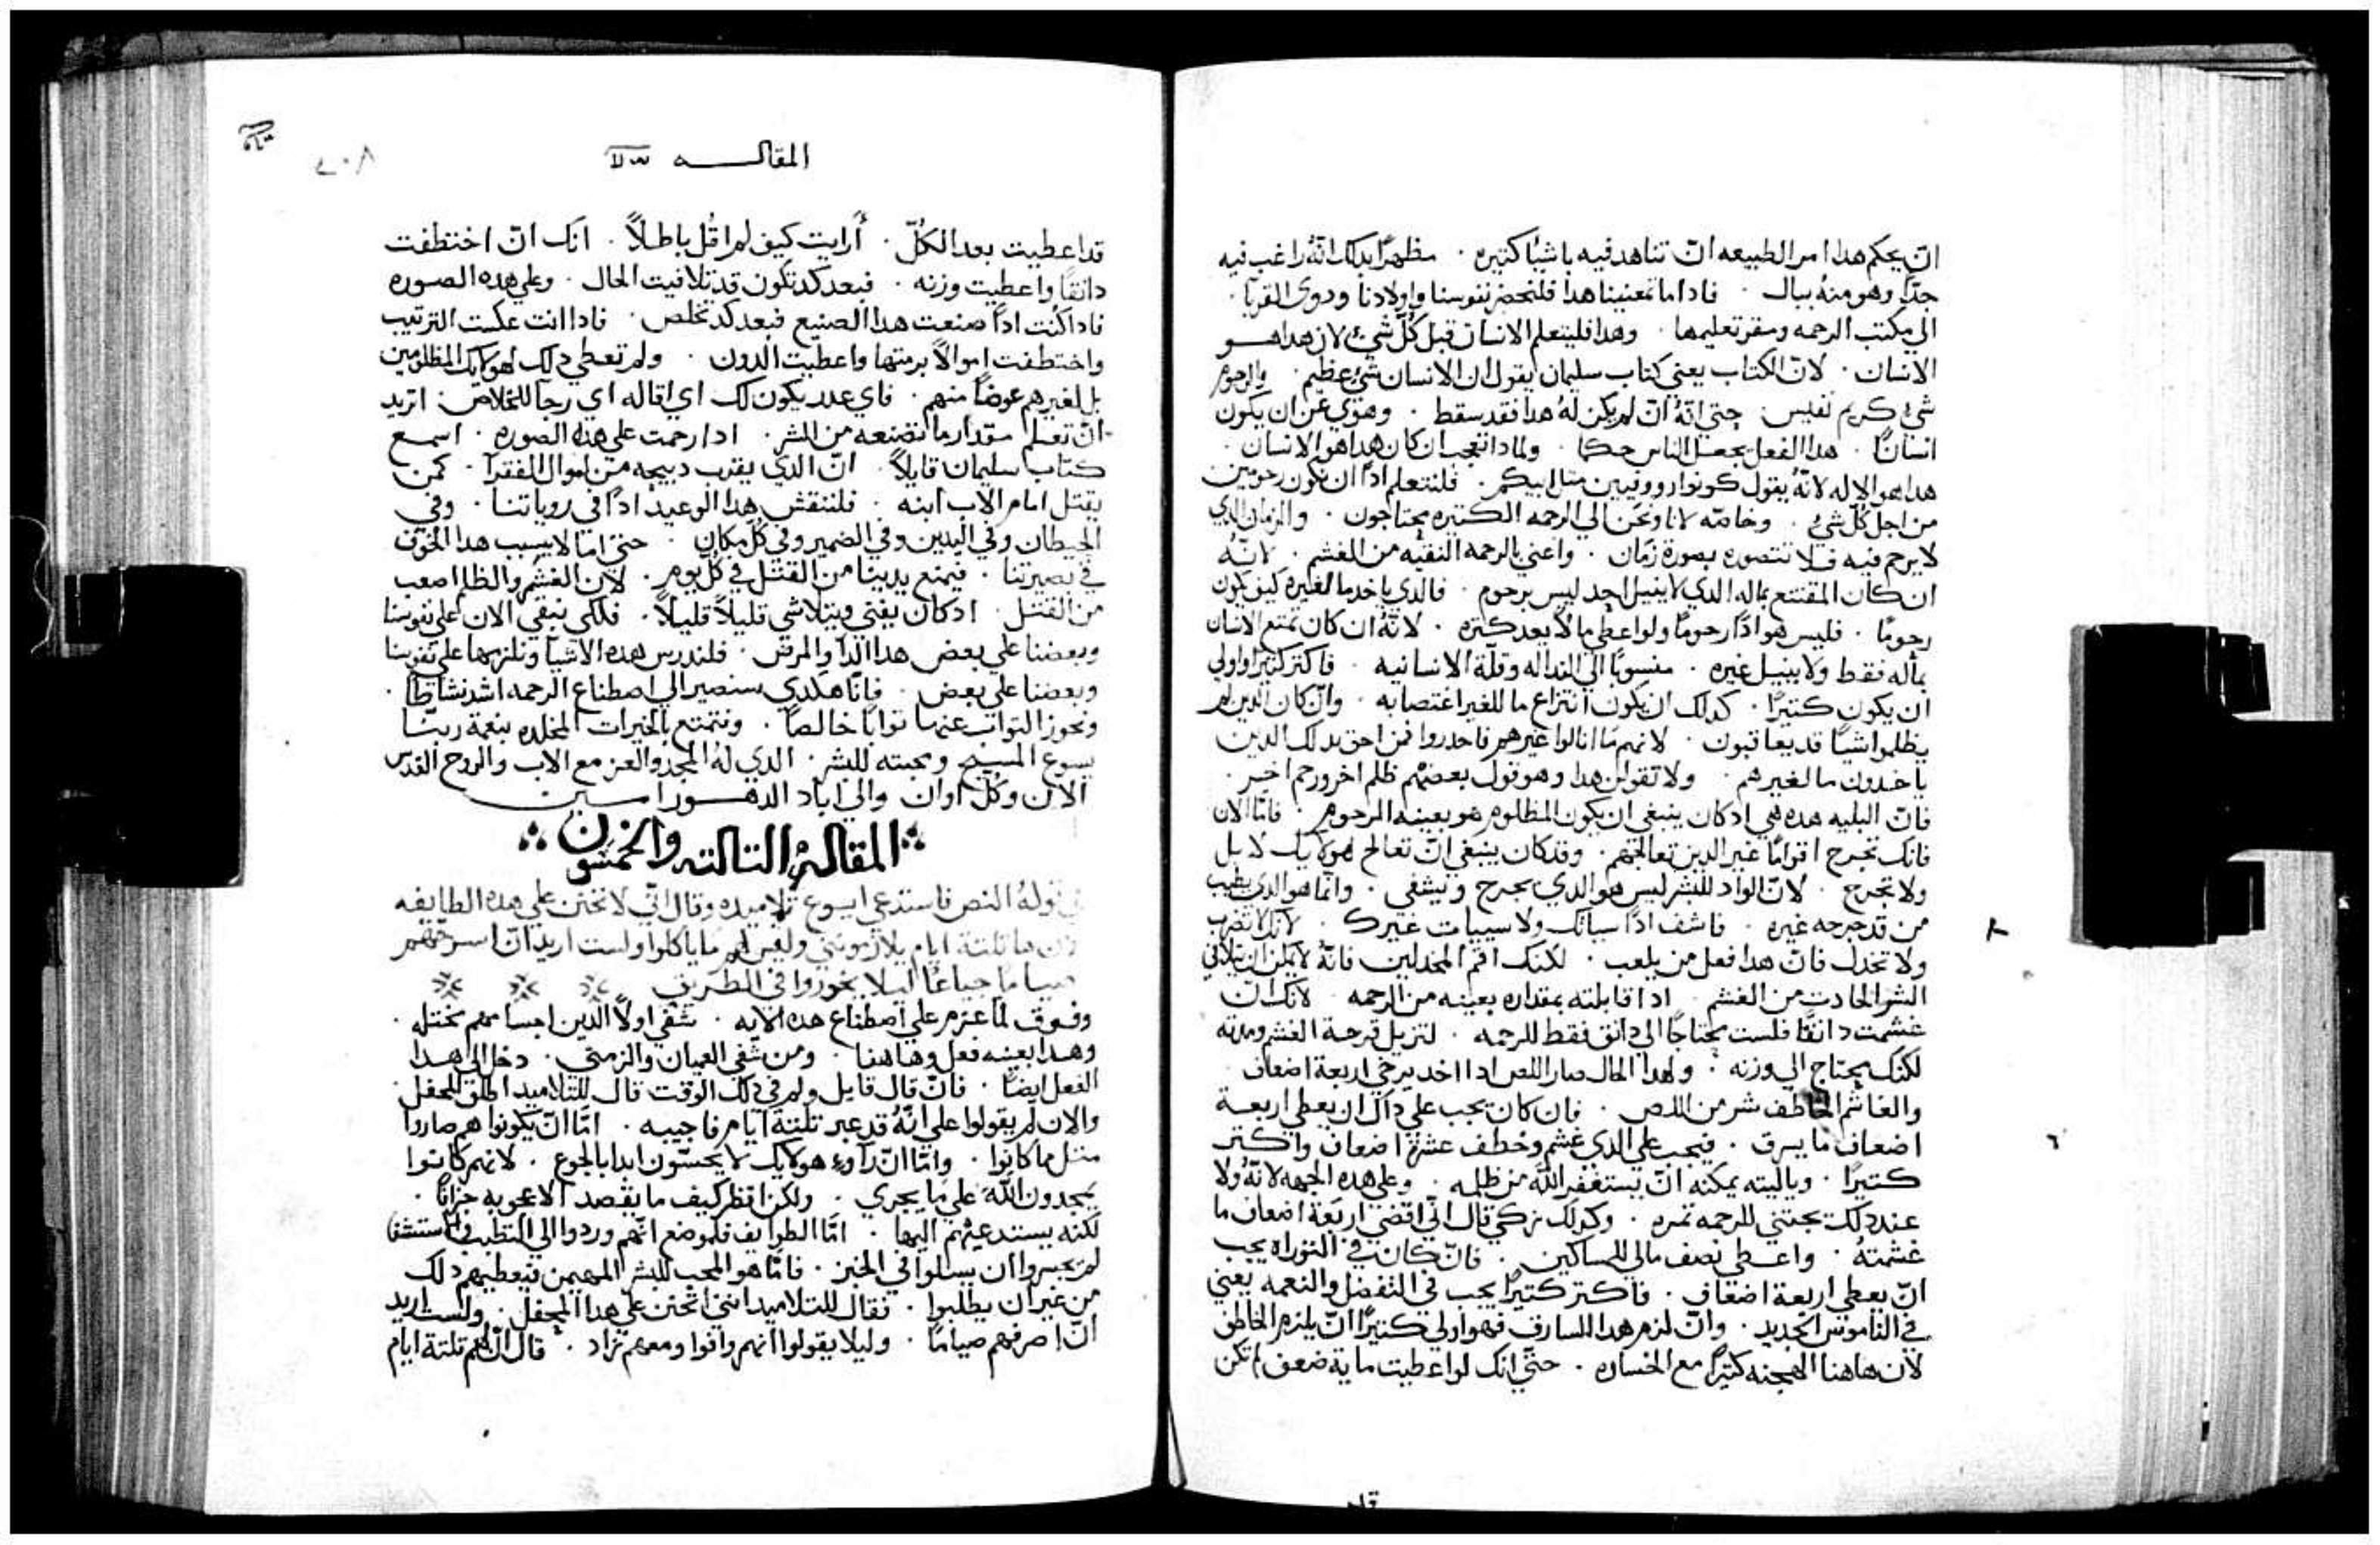 ان يحكم هدا امر الطبيعه ان تناهد فيه باشيا كتيره . مظهرًا بدلك انّه راغب فيه
جدًا وهو منهُ ببال . فادا ما تمعنينا هدا فلنحضر نفوسنا واولادنا ودوى القربا .
الي مكتب الرحمه ومقر تعليمها . وهدا فليتعلم الانسان قبل كُلّ شيْ لان هدا هــو
الانسان . لانّ الكتاب يعني كتاب سليمان يقول ان الانسان شيْ عظيم . والرحوم
شيْ كريم نفيس . حتى انّهُ انّ لم يكن لهُ هدا فقد سقط . وهوي عن ان يكون
انسانًا . هدا الفعل يجعل الناس حكما . ولمادا تعجب ان كان هدا هو الانسان .
هدا هو الاله لانّهُ يقول كونوا رووفيين متل ابيكم . فلنتعلم ادًا ان نكون رحومين
من اجل كُلّ شيْ . وخاصّه لانا ونحن الي الرحمه الكتيره محتاجون . والزمان الدي
لا يرحم فيه فـلا تتصوره بصورة زمان . واعني بالرحمه النقيّه من الغشم . لانّهُ
ان كان المقتنع بماله الدي لا ينيل احد ليس برحوم . فالدي ياخد ما لغيره كيف يكون
رحومًا . فليس هو ادًا رحومًا ولو اعطي ما لا يعد كتره . لانّهُ ان كان تمتع الانسان
بماله فقط ولا ينيـل غيره . منسوبًا الي النداله وقلّة الانسانيه . فاكتر كتيرًا واولي
ان يكون كتيرًا . كدلك ان يكون انتزاع ما للغير اغتصابه . وانّ كان الدين لم
يظلموا شيًا قد يعاقبون . لانهم ما انالوا غيرهم فاحدروا فمن احق بدلك الدين
ياخدون ما لغيرهم . ولا تقولن هدا وهو قول بعضهم ظلم اخر ورحم اخـر .
فانّ البليه هده هي ادكان ينبغي ان يكون المظلوم هو بعينه المرحوم . فامّا الان
فانك تجرح اقوامًا غير الدين تعالجهم . وقد كان ينبغي انّ تعالج هولايك لا بل
ولا تجرح . لانّ الواد للبشر ليس هو الدي يجرح ويشفي . وانّما هو الدي يطيب
من قد جرحه غيره . فاشف ادًا سياتك ولا سييات غيرك . لانك لا تضرب
ولا تخدل فانّ هدا فعل من يلعب . لكنك اقم المخدلين فانّهُ لا يمكن ان يتلافي
الشر الحادت من الغشم . ادا قابلته بمقداره بعينه من الرحمه . لانك انّ
غشمت دانقًا فلست محتاجًا الي دانق فقط للرحمه . لتزيل قرحة الغشم ومدته
لكنك يحتاج الي وزنه . ولهدا الحال صار اللص ادا اخد يرخي اربعة اضعاف
والغاشم الخاطف شر من اللص . فان كان يجب علي داك ان يعطي اربعــة
اضعاف ما يسرق . فيجب علي الدي غشم وخطف عشرة اضعاف واكتــر
كتيرًا . وياليته يمكنه انّ يستغفر اللّه من ظلمه . وعلي هده الجهه لانّهُ ولا
عند دلك يجتني للرحمه تمره . وكدلك زكي قال انّي اقضي اربعة اضعاف ما
غشمتهُ . واعـطي نصف مالي للمساكين . فانّ كان في التوراه يجب
انّ يعطي اربعة اضعاف . فاكتر كتيرًا يجب في التفضل والنعمه يعني
في الناموس الجديد . وانّ لزم هدا السارق فهو اولي كتيرًا انّ يلزم الخاطف
لان هاهنا الهجنه كتيرًا مع الخساره . حتّي انك لو اعطيت ماية ضعف لم تكن
المقالـــــه
٢٠٨
قد اعطيت بعد الكُلّ . أرايت كيف لم اقُل باطـلًا . انك انّ اختطفت
دانقًا واعطيت وزنه . فبعد كد تكون قد تلافيت الحال . وعلي هده الصـوره
فادا كُنت ادًا صنعت هدا الصنيع فبعد كد تخلص . فادا انت عكست الترتيب
واختطفت اموالًا برمتها واعطيت الدون . ولم تعطي دلك لهولايك المظلومين
بل لغيرهم عوضًا منهم . فاي عدد يكون لك اي اقاله اي رجا للخلاص . اتريد
انّ تعلم مقدار ما تصنعه من الشر . ادا رحمت علي هده الصوره . اسمـع
كتاب سليمان قايلًا . انّ الدي يقرب دبيحه من اموال الفقرا . كمن
يقتل امام الاب ابنه . فلننقش هدا الوعيد ادًا في روياتنا . وفي
الحيطان وفي اليدين وفي الضمير وفي كُل مكان . حتى امّا لا بسبب هدا الخوف
في بصيرتنا . فيمنع يدينا من القتـل في كُل يوم . لان الغشم والظلم اصعب
من القتـل . ادكان يفني ويتلاشي قليلًا قليلًا . فلكي نبقي الان علي نفوسنا
وبعضنا علي بعض هدا الدآ والمرض . فلندرس هده الاشيآ ونلزمها علي نفوسنا
وبعضنا علي بعض . فانّا هكدي سنصير الي اصطناع الرحمه اشد نشاطًا .
ونحوز التواب عنها توابًا خالصًا . ونتمتع بالخيرات المخلده بنعمة ربنّا
يسوع المسيح ومحبته للبشر . الدي لهُ المجد والعز مع الاب والروح القدس
الان وكُل اوان والي اباد الدهــور امــين
المقالة التالته والخمسون
في قولهُ النص فاستدعي ايسوع تلاميده وقال انّي لاتحنن علي هده الطايفه
لان ها تلتة ايام يلازموني وليس لهم ما ياكلوا ولست اريد انّ اسرحهم
صيامًا جياعًا ليـلا يخوروا في الطريق
وفـوق لمّا عزم علي اصطناع هده الايه . شفي اولًا الدين اجسامهم مختله .
وهـدا بعينه فعل وهاهنا . ومن شفي العميان والزمني . دخل الي هـدا
الفعل ايضًا . فانّ قال قايل ولم في دلك الوقت قال للتلاميد اطلق المحفل .
والان لم يقولوا علي انّهُ قد عبر تلتة ايام فاجيبه . امّا انّ يكونوا هم صاروا
متـل ما كانوا . وامّا انّ رآوء هولايك لا يحسّون ابدا بالجوع . لانهم كانوا
يمجدون اللّه علي ما يجري . ولكن انظر كيف ما يقصد الاعجوبه جزافًا .
لكنه يستدعيهم اليها . امّا الطوايف فلموضع انّهم وردوا الي التطبب
لم تجسروا ان يسلوا في الخبز . فامّا هو المحب للبشر المهيمن فيعطيهم دلك
من غير ان يطلبوا . فقال للتلاميد انني اتحنن علي هدا المحفل . ولست اريد
انّ اصرفهم صيامًا . وليلا يقولوا انهم وافوا ومعهم زاد . قال انّ لهم تلتة ايام